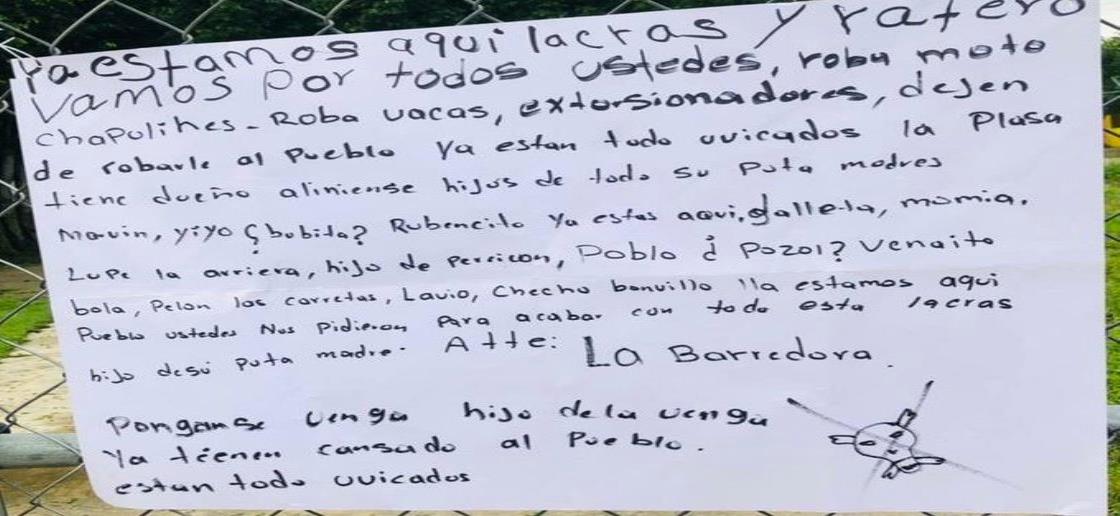 Ya estamos aqui lacras y ratero
Vamos por todos ustedes, roba moto
Chapulines - Roba vacas, extorsionadores, dejen
de robarle al Pueblo Ya estan todo uvicados la Plasa
tiene dueño aliniense hijos de todo su puta madres
Marvin, yiyo ¿bubita? Rubencito Ya estas aqui, galleta, momia.
Lupe la arriera, hijo de Pericon, Pablo ¿ Pozol? Venaito
bola, Pelon las carretas, Lavio, Checho bonvillo lla estamos aqui
Pueblo ustedes Nos Pidieron Para acabar con todo esta lacras
hijo desu puta madre. Atte: La Barredora.
Ponganse venga hijo dela venga
Ya tienen cansado al Pueblo.
estan todo uvicados